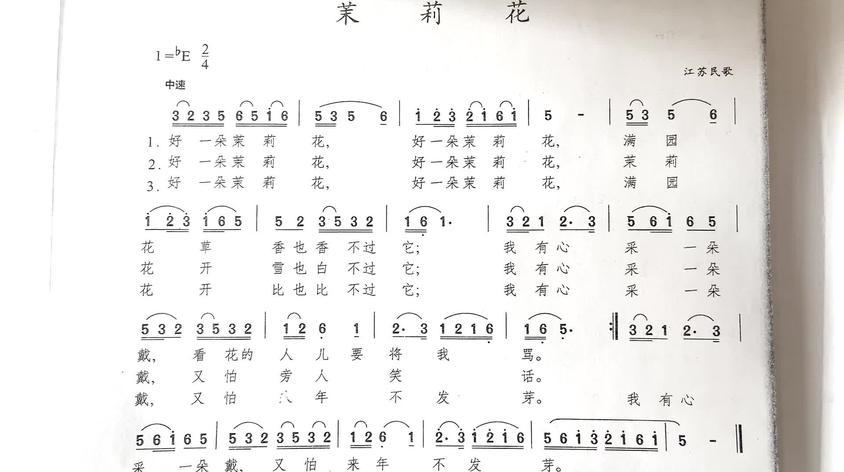 茉 莉 花
1=♭E 2/4
江苏民歌
中速
3 2 3 5 6 5 1̇ 6 | 5 3 5 6 | 1̇ 2̇ 3̇ 2̇ 1̇ 6 1̇ | 5 - | 5 3 5 6 |
1. 好 一 朵 茉 莉 花, 好 一 朵 茉 莉 花, 满 园
2. 好 一 朵 茉 莉 花, 好 一 朵 茉 莉 花, 茉 莉
3. 好 一 朵 茉 莉 花, 好 一 朵 茉 莉 花, 满 园
1̇ 2̇ 3̇ 1̇ 6 5 | 5 2 3 5 3 2 | 1 6̣ 1· | 3 2 1 2· 3 | 5 6 1̇ 6 5 |
花 草 香 也 香 不 过 它; 我 有 心 采 一 朵
花 开 雪 也 白 不 过 它; 我 有 心 采 一 朵
花 开 比 也 比 不 过 它; 我 有 心 采 一 朵
5 3 2 3 5 3 2 | 1 2 6̣ 1 | 2· 3 1 2 1 6̣ | 5̣· :‖ 3 2 1 2· 3 |
戴, 看 花 的 人 儿 要 将 我 骂。
戴, 又 怕 旁 人 笑 话。
戴, 又 怕 年 不 发 芽。 我 有 心
5 6 1̇ 6 5 | 5 3 2 3 5 3 2 | 1 2 6̣ 1 | 2· 3 1 2 1 6̣ | 5 6 1̇ 5 6 3̇ 2̇ 1̇ 6 1̇ | 5 - ‖
采 一 朵 戴, 又 怕 来 年 不 发 芽。